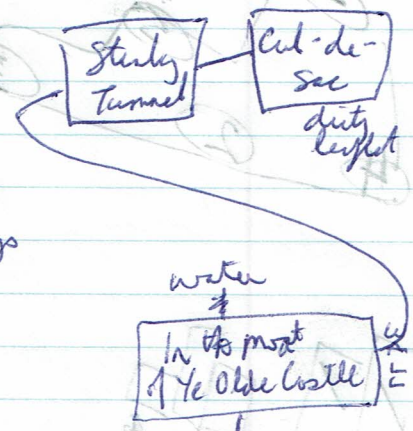 Stinky
Tunnel
Cul-de-
Sac
dirty
leaflet
water
In the moat
of Ye Olde Castle